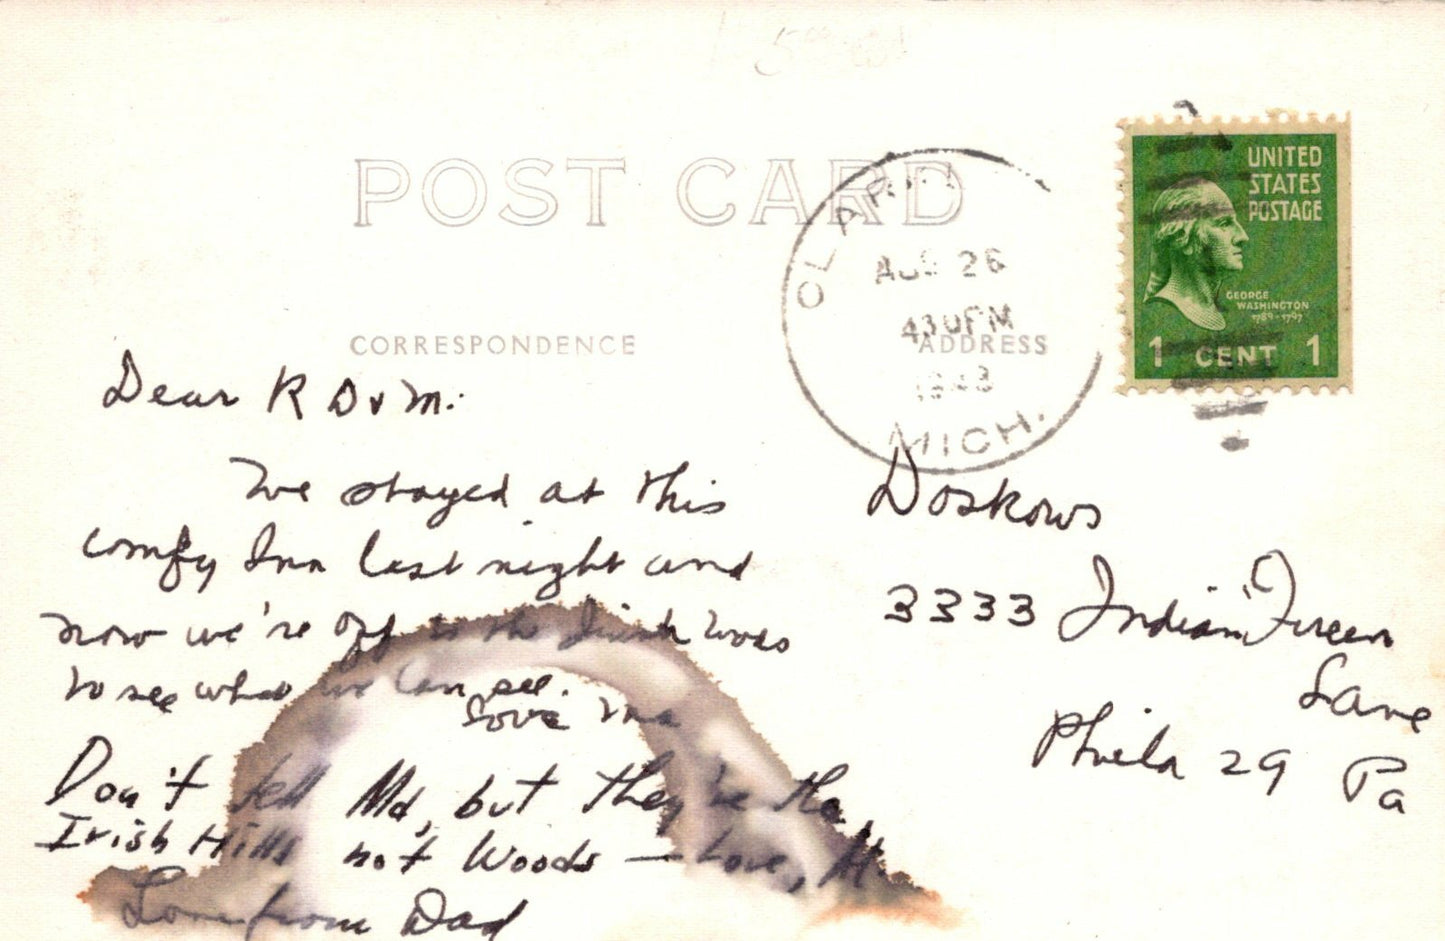 POST CARD
CORRESPONDENCE
ADDRESS
AUG 26
430PM
MICH.
UNITED
STATES
POSTAGE
GEORGE
WASHINGTON
1789-1797
1 CENT 1
Dear R D & M:
We stayed at this
comfy Inn last night and
now we're off to the Irish Woods
to see what we can see.
Love Ma
Don't tell Md, but they're the
Irish Hills not Woods — Love, M.
Love from Dad
Doskows
3333 Indian Queen
Lane
Phila 29
Pa